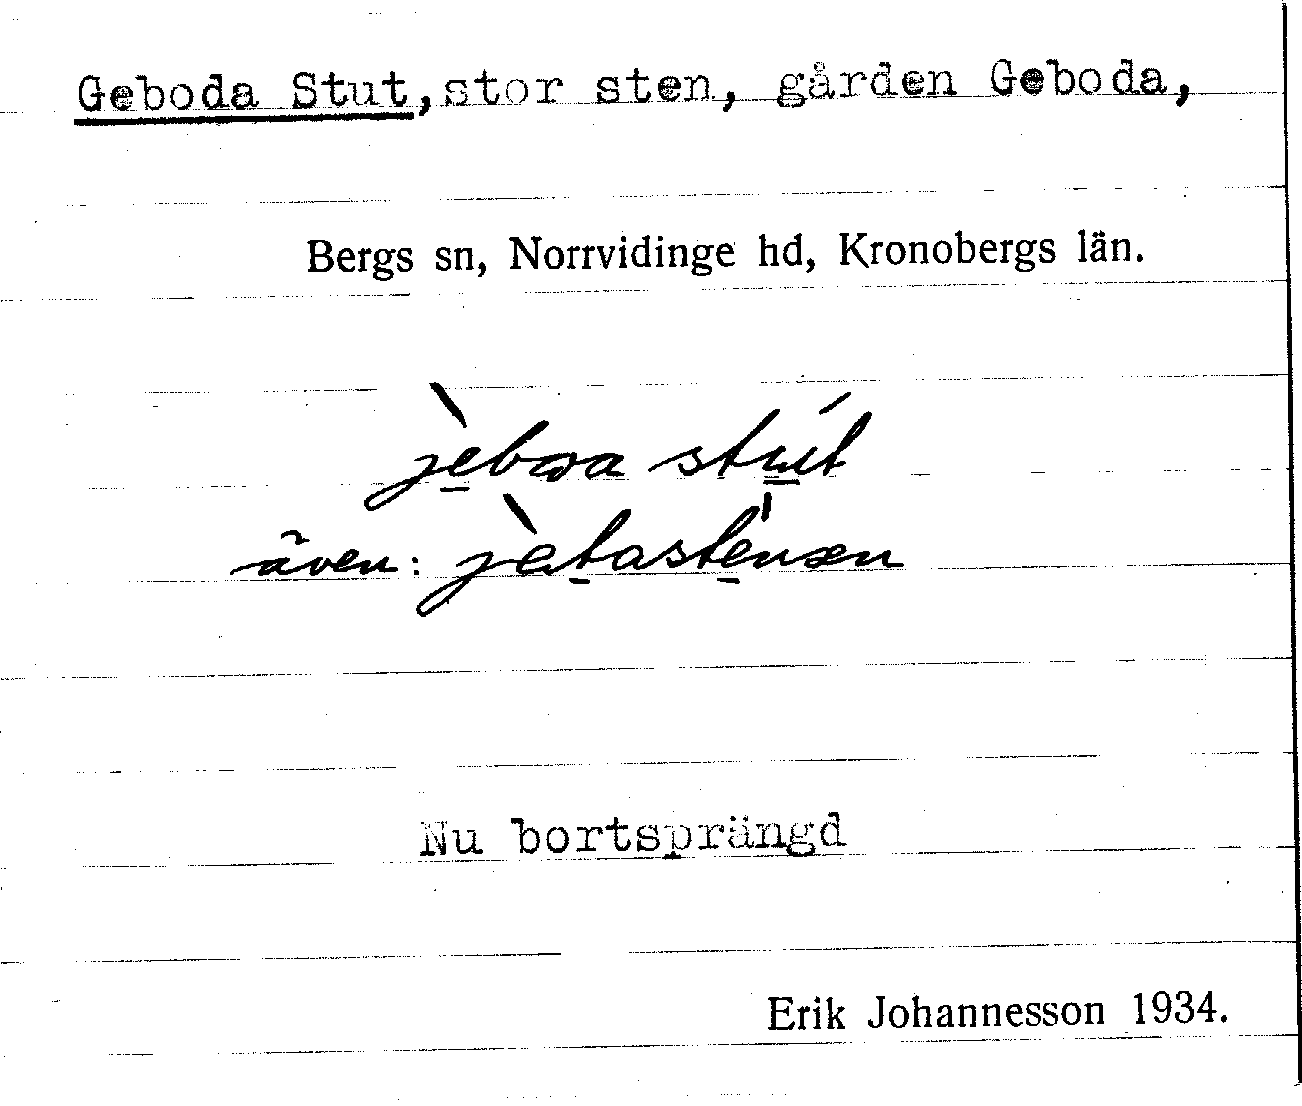 Geboda Stut, stor sten, gården Geboda,
Bergs sn, Norrvidinge hd, Kronobergs län.
stut
även:
Nu bortsprängd
Erik Johannesson 1934.